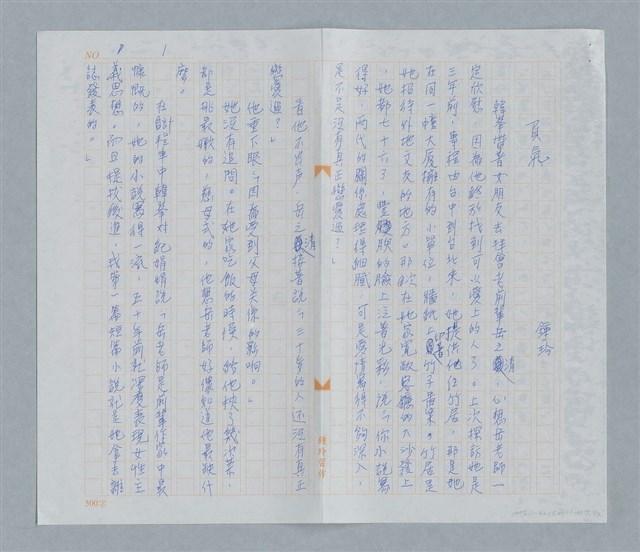 夏氣
鍾玲
韓莘帶著女朋友去拜會老前輩岳之清，心想岳老師一
定欣慰，因為他終於找到可以愛上的人了。上次探訪她是
三年前，專程由台中到台北來，她提供他住竹居，那是她
在同一幢大廈擁有的小單位，牆紙上印著竹子圖案。竹居是
她招待外地文友的地方。那次在她家寬敞客廳的大沙發上
，她都七十六了，豐腴的臉上泛著光彩，說：「你小說寫
得好，兩代的關係處理得細膩，可是愛情寫得不夠深入，
是不是沒有真正戀愛過？」
看他不出声，岳之清接著說：「三十多的人還沒有真正
戀愛過？」
他垂下眼：「因為受到父母关係的影响。」
她沒有追問。在她家吃飯的時候，給他挾了幾次菜，
都是挑最嫩的，慈母式的，他想岳老師好像知道他最缺什
麼。
在計程車中韓莘對紀娟娟說：「岳老師是前輩作家中最
慷慨的，她的小說寫得一流，五十年前就憑着表現女性主
義思想。而且提拔後進，我第一篇短篇小說就是她拿去雜
誌發表的。」
NO
1
300字
鍾玲稿件